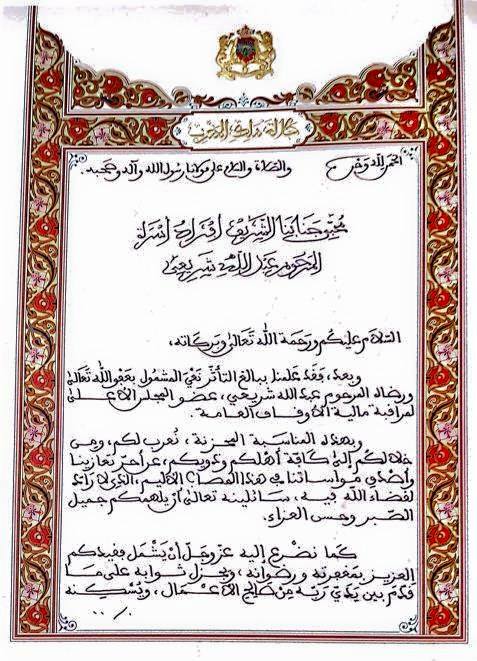 جلالة ملك المغرب
الحمد لله وحده والصلاة والسلام على مولانا رسول الله وآله وصحبه
محبي جنابنا الشريف أفراد أسرة
المرحوم عبد الله شريعي
السلام عليكم ورحمة الله تعالى وبركاته،
وبعد، فقد علمنا ببالغ التأثر نعي المشمول بعفو الله تعالى
ورضاه المرحوم عبد الله شريعي، عضو المجلس الأعلى
لمراقبة مالية الأوقاف العامة.
وبهذه المناسبة المحزنة، نعرب لكم، ومن
خلالكم إلى كافة أهلكم وذويكم، عن أحر تعازينا
وأصدق مواساتنا في هذا المصاب الأليم، الذي لا راد
لقضاء الله فيه، سائلينه تعالى أن يلهمكم جميل
الصبر وحسن العزاء.
كما نضرع إليه عز وجل أن يشمل فقيدكم
العزيز بمغفرته ورضوانه، ويجزل ثوابه على ما
قدم بين يدي ربه من صالح الأعمال، ويسكنه